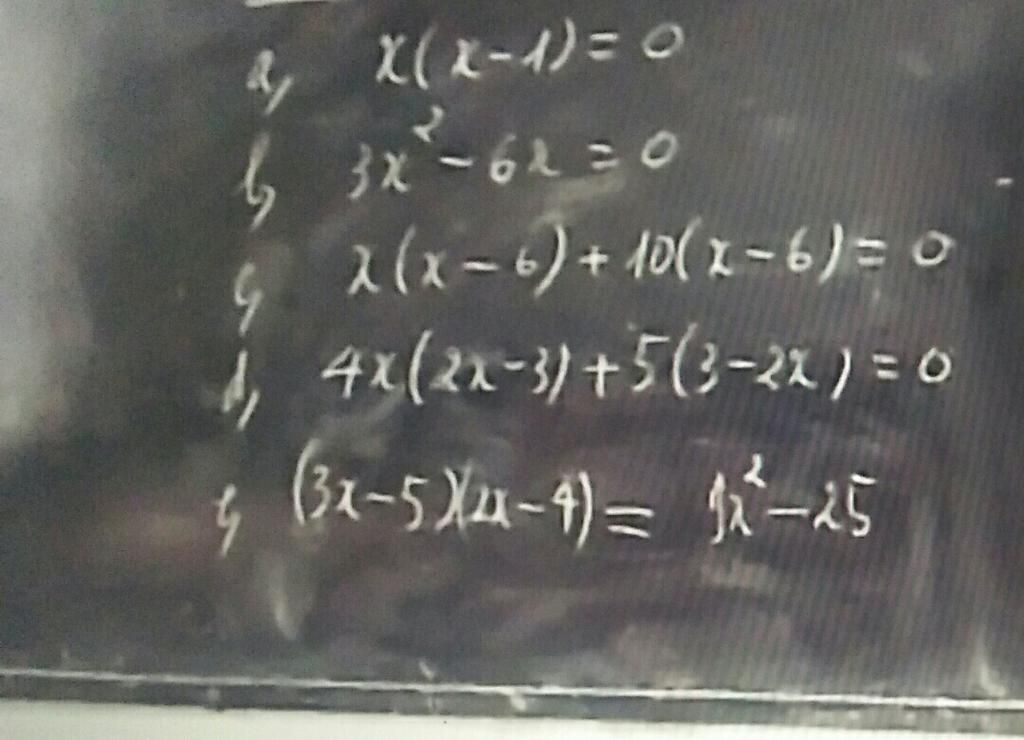 a, x(x-1)=0
b, 3x²-6x=0
c, x(x-6)+10(x-6)=0
d, 4x(2x-3)+5(3-2x)=0
(3x-5)(2x-4)= 9x²-25